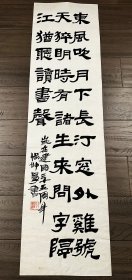 東風吹月下長汀窓外雞號
天明時有諸生来問字隔
江猶聽讀書聲